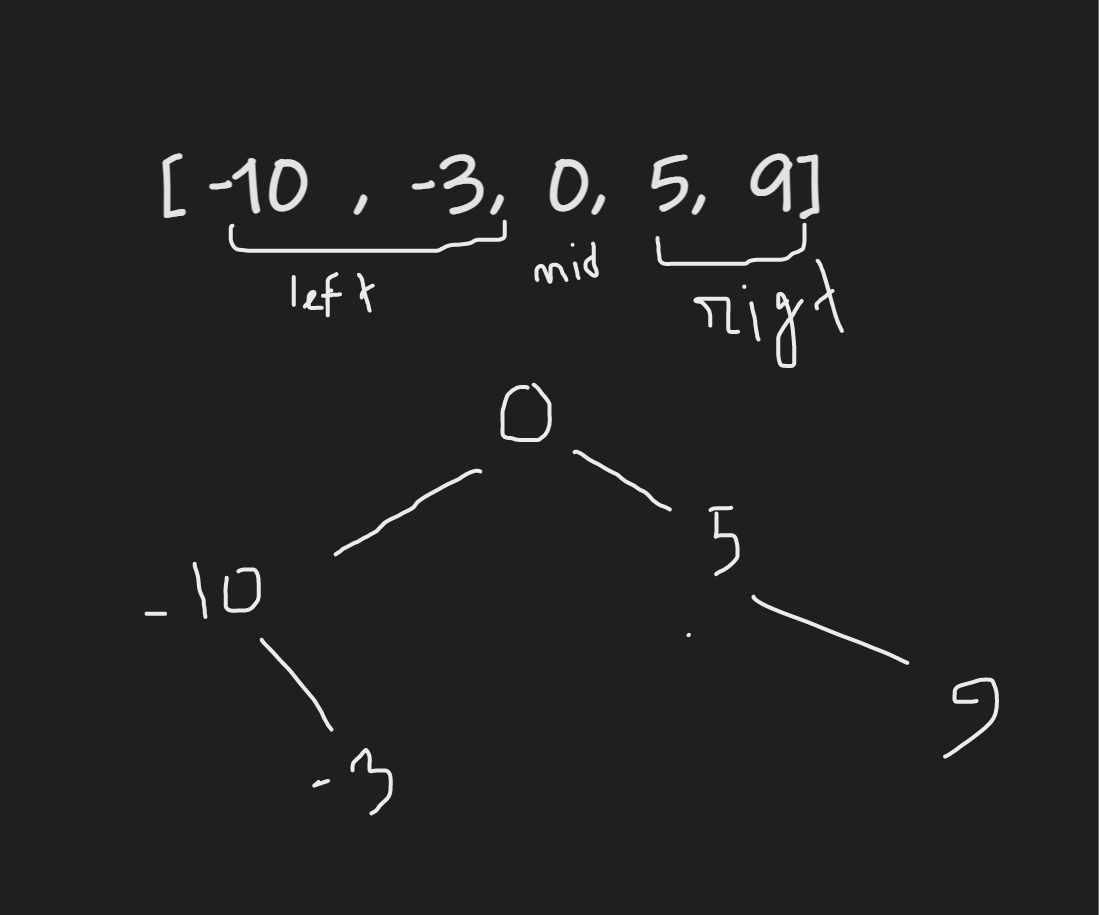 [-10 , -3, 0, 5, 9]
left mid right
0
5
-10
9
-3